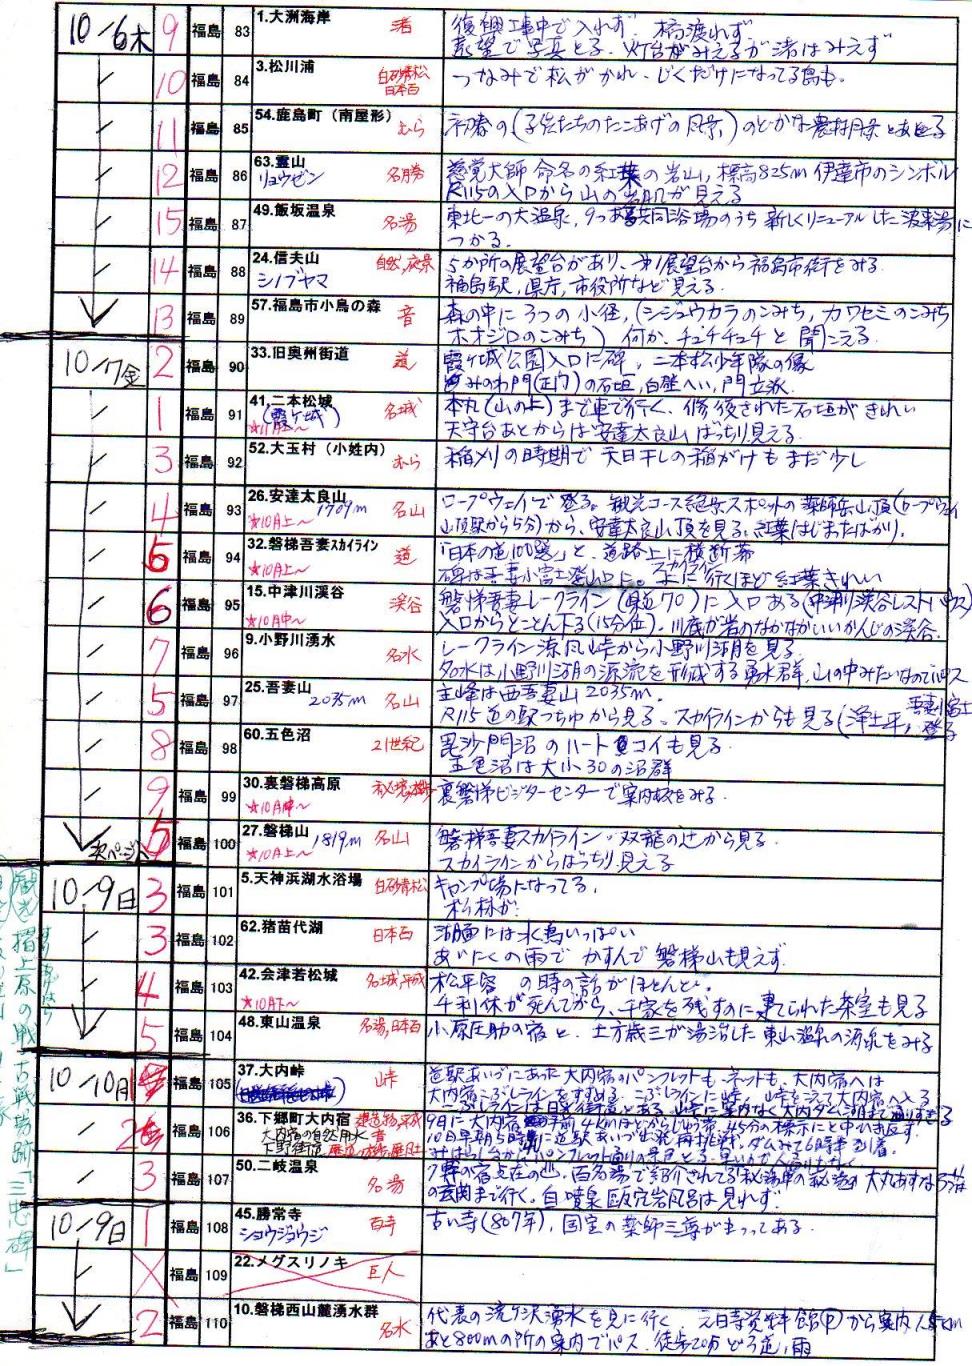 10/6木 9 福島 83 1.大洲海岸 渚 復興工事中で入れず. 橋渡れず.
展望で写真とる. 灯台がみえるが渚はみえず
10 福島 84 3.松川浦 白砂青松 日本百 つなみで松がかれ、じくだけになってる島も.
11 福島 85 54.鹿島町（南屋形） むら 初春の(子供たちのたこあげの風景)のどかな農村月景とある
12 福島 86 63.霊山 リョウゼン 名勝 慈覚大師命名の紅葉の岩山, 標高825m 伊達市のシンボル
R115の入口から山の岩肌が見える
15 福島 87 49.飯坂温泉 名湯 東北一の大温泉, 9つある共同浴場のうち新しくリニューアルした波来湯に
つかる.
14 福島 88 24.信夫山 シノブヤマ 自然, 夜景 5か所の展望台があり、オ1展望台から福島市街をみる.
福島駅, 県庁, 市役所など見える.
13 福島 89 57.福島市小鳥の森 音 森の中に3つの小径, (シジュウカラのこみち, カワセミのこみち
ホオジロのこみち) 何か、チュチチュチと聞こえる.
10/7金 2 福島 90 33.旧奥州街道 道 霞ヶ城公園入口に碑, 二本松少年隊の像
みのわ門(正門)の石垣, 白壁へい, 門立派.
1 福島 91 41,二本松城 (霞ヶ城) ★11月上〜 名城 本丸(山の上)まで車で行く. 修復された石垣がきれい
天守台あとからは安達太良山ばっちり見える.
3 福島 92 52.大玉村（小姓内） むら 稲刈りの時期で天日干しの稲がけもまだ少し
4 福島 93 26.安達太良山 1709m ★10月上〜 名山 ロープウェイで登る。観光コース絶景スポットの薬師岳山頂(ロープウェイ
山頂駅から5分)から、安達太良山頂を見る。紅葉はじまたばかり.
5 福島 94 32.磐梯吾妻ｽｶｲﾗｲﾝ ★10月上〜 道 「日本の道100選」と、道路上に横断幕
碑は吾妻小富士登山口に. スカイライン 上に行くほど紅葉きれい
6 福島 95 15.中津川渓谷 ★10月中〜 渓谷 磐梯吾妻レークライン(県道70)に入口ある(中津川渓谷レストハウス)
入口からとことん下る(15分位). 川底が岩のなかなかいいかんじの渓谷.
7 福島 96 9.小野川湧水 名水 レークライン涼風峠から小野川湖を見る
名水は小野川湖の源流を形成する湧水群, 山の中みたいなのでパス
5 福島 97 25.吾妻山 2035m 名山 主峰は西吾妻山 2035m.
R115道の駅つちゆから見る。スカイラインからも見る(浄土平, 吾妻小富士登る
8 福島 98 60.五色沼 21世紀 毘沙門沼のハート コイも見る.
五色沼は大小30の沼群
9 福島 99 30.裏磐梯高原 ★10月中〜 裏磐梯ビジターセンターで案内板をみる.
次ページへ 5 福島 100 27.磐梯山 1819m ★10月上〜 名山 磐梯吾妻スカイライン・双龍の辻から見る.
スカイラインからばっちり見える
10/9日 3 福島 101 5.天神浜湖水浴場 白砂青松 キャンプ場になってる.
松林が.
3 福島 102 62.猪苗代湖 日本百 湖面には水鳥いっぱい
あいにくの雨で かすんで磐梯山も見えず.
4 福島 103 42.会津若松城 ★10月下〜 名城, 平成 松平容 の時の話がほとんど.
千利休が死んでから、千家を残すのに建てられた茶室も見る
5 福島 104 48.東山温泉 名湯, 日本百 小原庄助の宿と、土方歳三が湯治した東山温泉の源泉をみる
10/10月 1 福島 105 37.大内峠 峠 道駅あいづにあった大内宿のパンフレットも、ネットも、大内宿へは
大内宿こぶしラインをすすめる. こぶしラインに峠. 峠をこえて大内宿へ入る
こぶしラインは日光街道とある. 峠に案内なく大内ダム湖まで通りすぎる
2 福島 106 36.下郷町大内宿 大内宿の自然用水 音 下野街道 9日に大内宿 手前4kmほどからじゅう滞, 45分の標示にと中ひき返す.
10日早朝5時 に道駅あいづ出発 再挑戦. ダムみて6時半到着
3 福島 107 50.二岐温泉 名湯 7軒の宿点在の . 百名湯で紹介されてる秘湯中の秘湯の大丸あすなろ荘
の玄関まで行く. 自噴泉 岩風呂は見れず.
10/9日 1 福島 108 45.勝常寺 ショウジョウジ 百寺 古い寺(807年), 国宝の薬師三尊がまつってある.
× 福島 109 22.メグスリノキ 巨人
2 福島 110 10.磐梯西山麓湧水群 名水 代表の流ヶ沢湧水を見に行く. 元日寺資料館Pから案内1.5km
あと800mの所の案内でパス. 徒歩20分どろ道, 雨
観光 摺上原の戦 古戦場跡「三忠碑」
すりあげはら